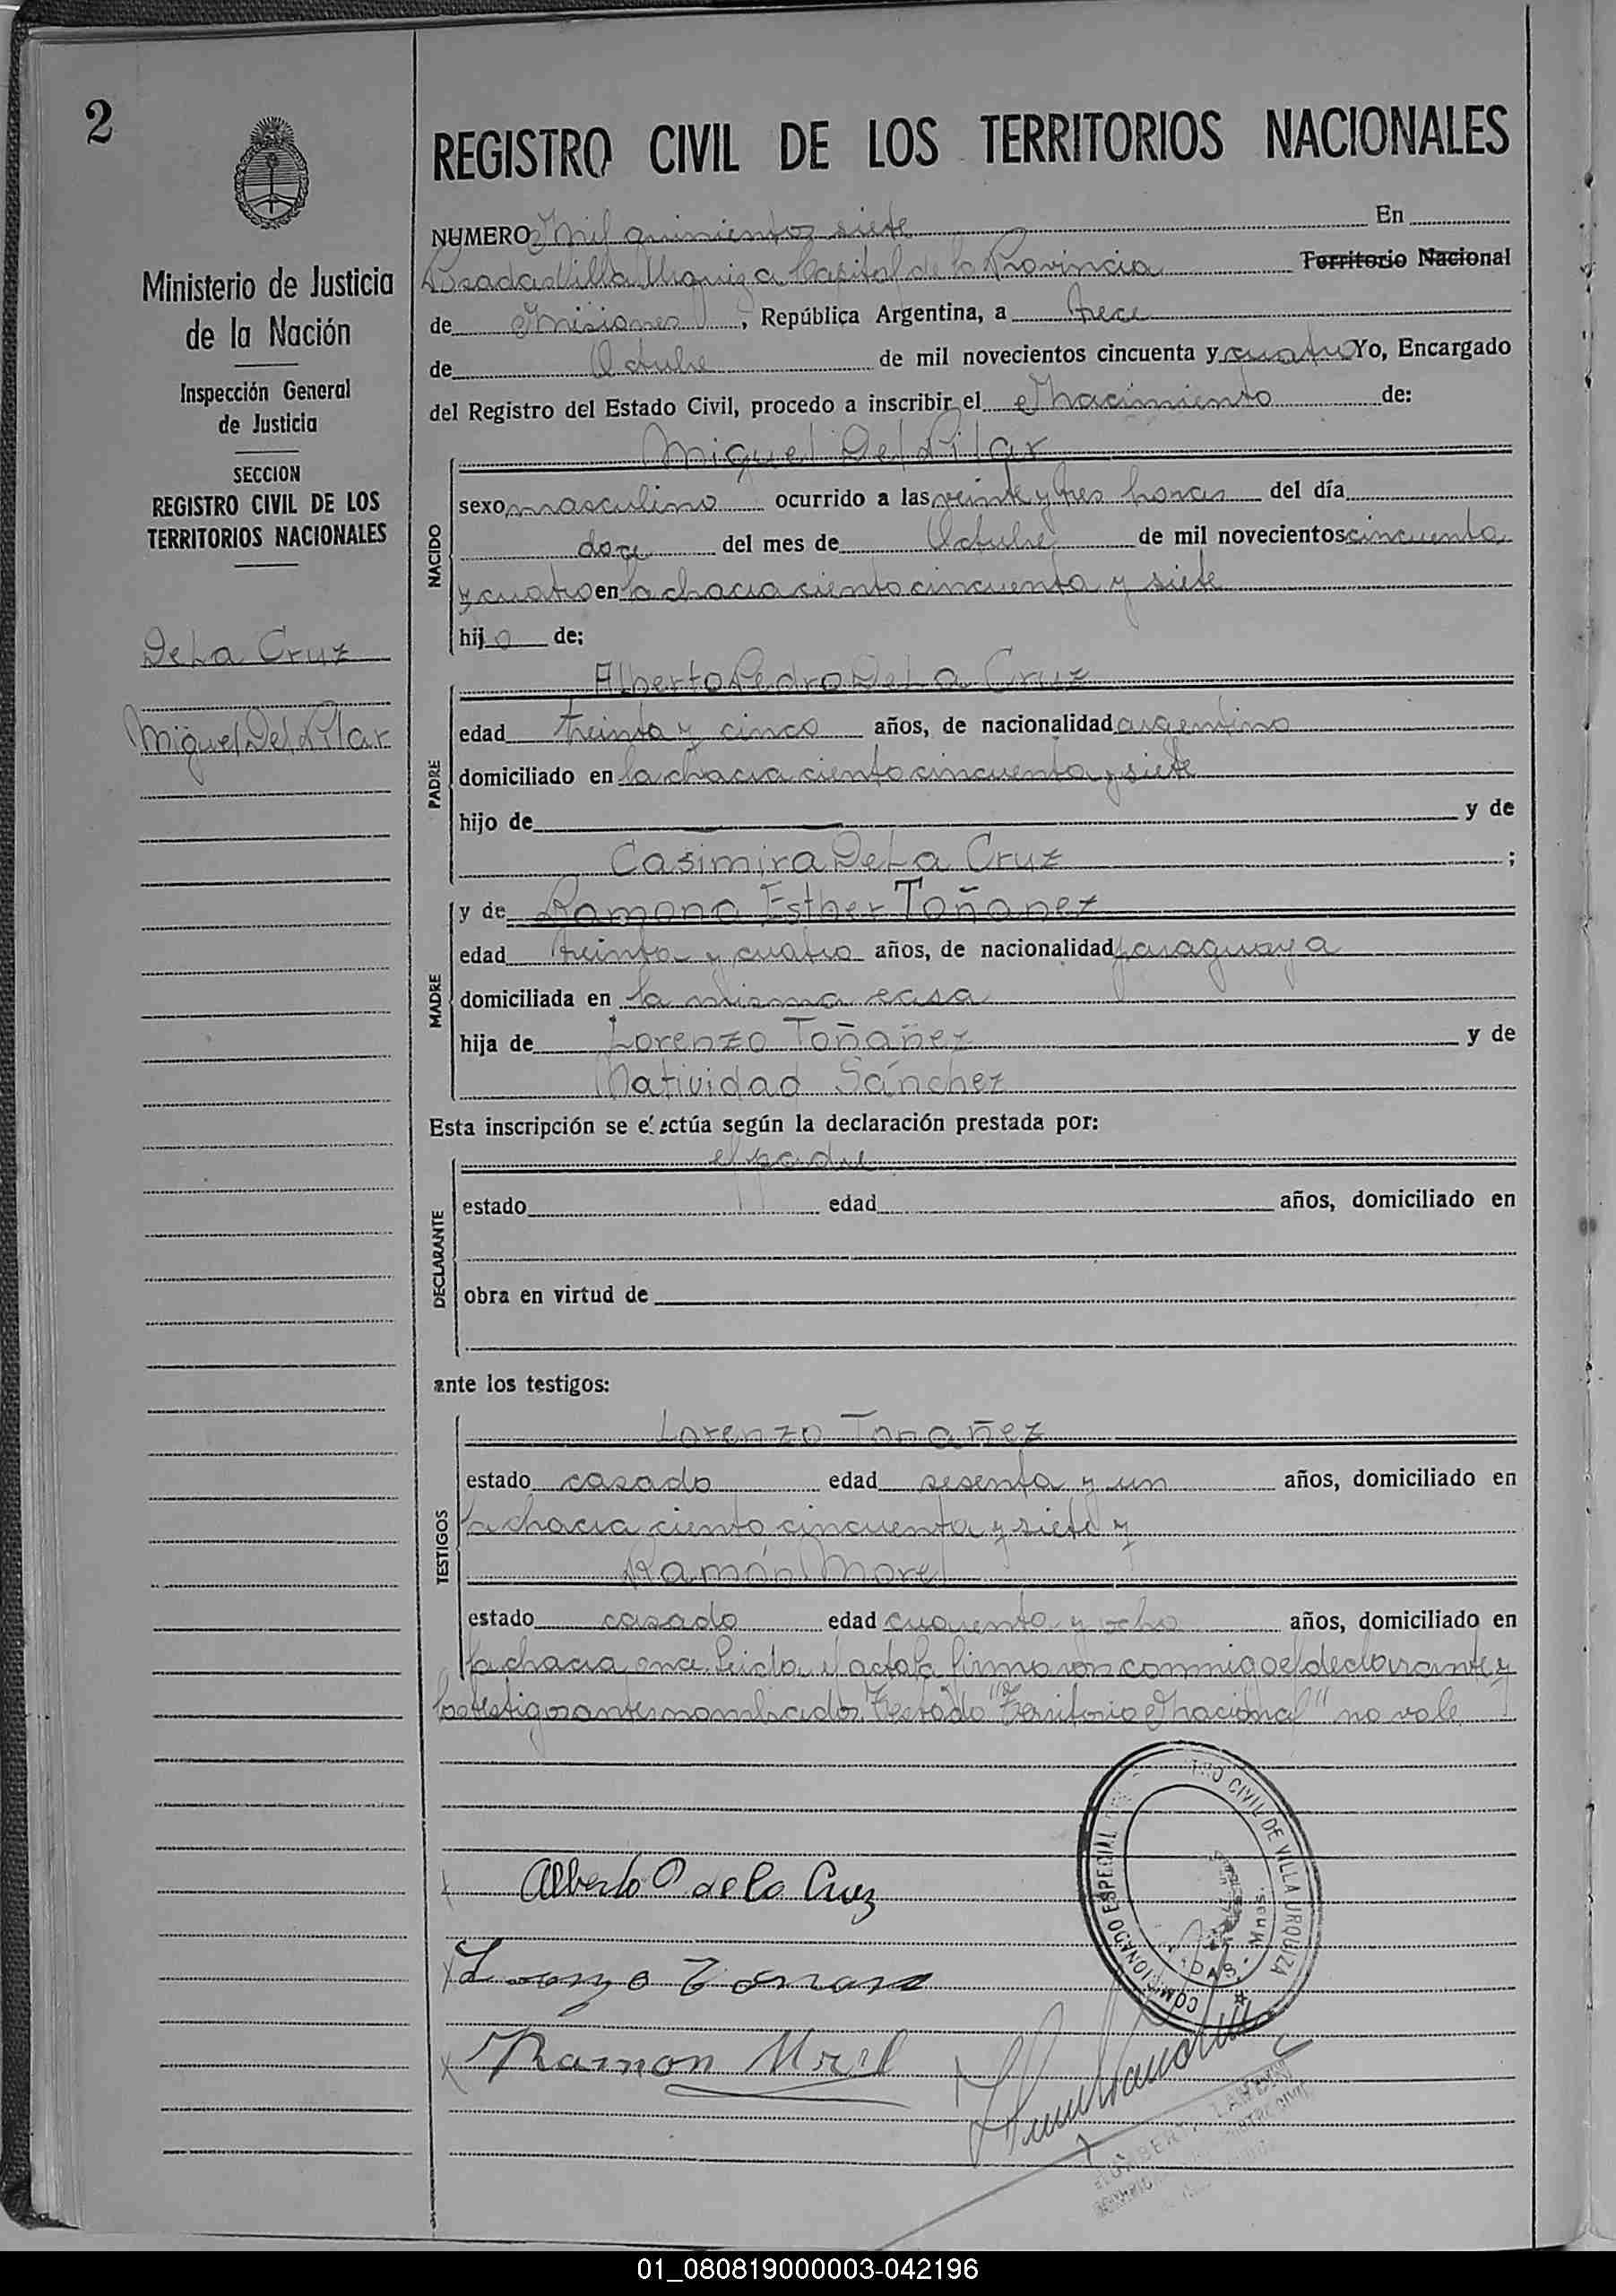 2
REGISTRO CIVIL DE LOS TERRITORIOS NACIONALES
Ministerio de Justicia
de la Nación
Inspección General
de Justicia
SECCION
REGISTRO CIVIL DE LOS
TERRITORIOS NACIONALES
De La Cruz
Miguel Del Pilar
NUMERO Mil quinientos siete En
Posadas Villa Urquiza Capital de la Provincia Territorio Nacional
de Misiones, República Argentina, a trece
de Octubre de mil novecientos cincuenta y cuatro Yo, Encargado
del Registro del Estado Civil, procedo a inscribir el Nacimiento de:
Miguel Del Pilar
NACIDO
sexo masculino ocurrido a las veinte y tres horas del día
doce del mes de Octubre de mil novecientos cincuenta
y cuatro en la chacra ciento cincuenta y siete
hijo de:
Alberto Pedro De La Cruz
PADRE
edad treinta y cinco años, de nacionalidad argentino
domiciliado en la chacra ciento cincuenta y siete
hijo de y de
Casimira De La Cruz ;
y de Ramona Esther Toñanez
MADRE
edad treinta y cuatro años, de nacionalidad paraguaya
domiciliada en la misma casa
hija de Lorenzo Toñañez y de
Natividad Sánchez
Esta inscripción se efectúa según la declaración prestada por:
el padre
DECLARANTE
estado edad años, domiciliado en
obra en virtud de
ante los testigos:
Lorenzo Tonañez
TESTIGOS
estado casado edad sesenta y un años, domiciliado en
la chacra ciento cincuenta y siete y
Ramón Morel
estado casado edad cuarenta y ocho años, domiciliado en
la chacra once. Leida el acta la firmaron conmigo el declarante y
los testigos antes nombrados. Testado "Territorio Nacional" no vale
Alberto P. de la Cruz
COMISIONADO ESPECIAL CIVIL DE VILLA URQUIZA
Mnes.
Ramon
01_080819000003-042196